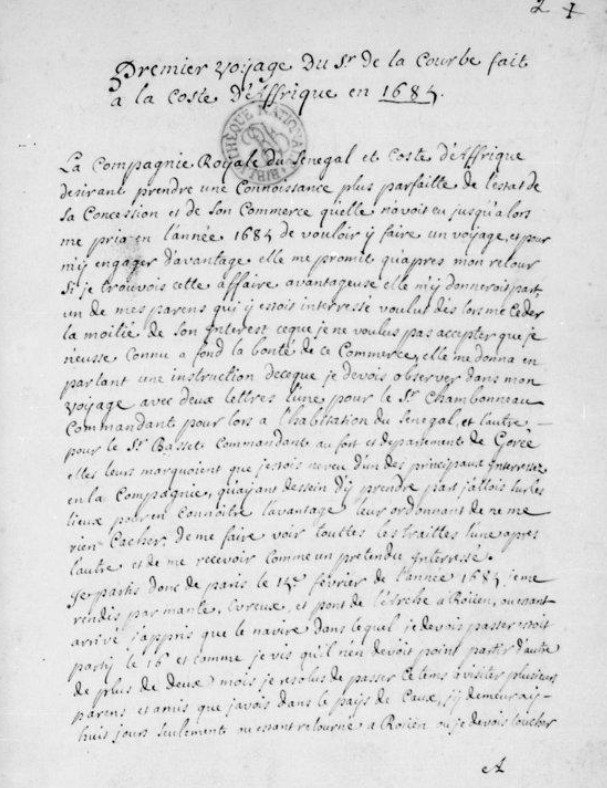 2 1
Premier voyage Du Sr. de la Courbe fait
a la coste d'Affrique en 1685.
BIBLIOTHEQUE NATIONALE
La Compagnie Royale du Senegal et Coste d'Affrique
desirant prendre une Connoissance plus parfaitte de l'estat de
sa Concession et de son Commerce qu'elle n'avoit eu jusqu'alors
me pria en l'année 1685 de vouloir y faire un voyage, et pour
m'y engager d'avantage elle me promit qu'apres mon retour
si je trouvois cette affaire avantageuse elle m'y donneroit part,
un de mes parens qui y estoit interressé voulut dés lors me Ceder
la moitié de son Interest ceque je ne voulus pas accepter que je
n'eusse connu a fond la bonté de ce Commerce, elle me donna en
partant une instruction deceque je devois observer dans mon
voyage avec deux lettres l'une pour le Sr. Chambonneau
Commandant pour lors a l'habitation du Senegal, et l'autre
pour le Sr. Basset Commandant au fort et departement de Gorée
elles leurs marquoient que j'estois neveu d'un des principaux Interressez
en la Compagnie, qu'ayant dessein d'y prendre part j'allois sur les
lieux pour en connoitre l'avantage leur ordonnant de ne me
rien Cacher, de me faire voir touttes les traittes l'une apres
l'autre et de me recevoir comme un pretendu Interressé.
Je partis donc de paris le février de l'année 1685, je me
rendis par mante, Evreux, et pont de l'Arche a Roüen, ou estant
arrivé j'appris que le navire dans lequel je devois passer estoit
party le 16e et comme je vis qu'il n'en devoit point partir d'autre
de plus de deux mois je resolus de passer ce tems a visiter plusieurs
parens et amis que j'avois dans le pays de Caux, j'y demeuray
huit jours seulement ou estant retourné a Roüen ou je devois toucher
A